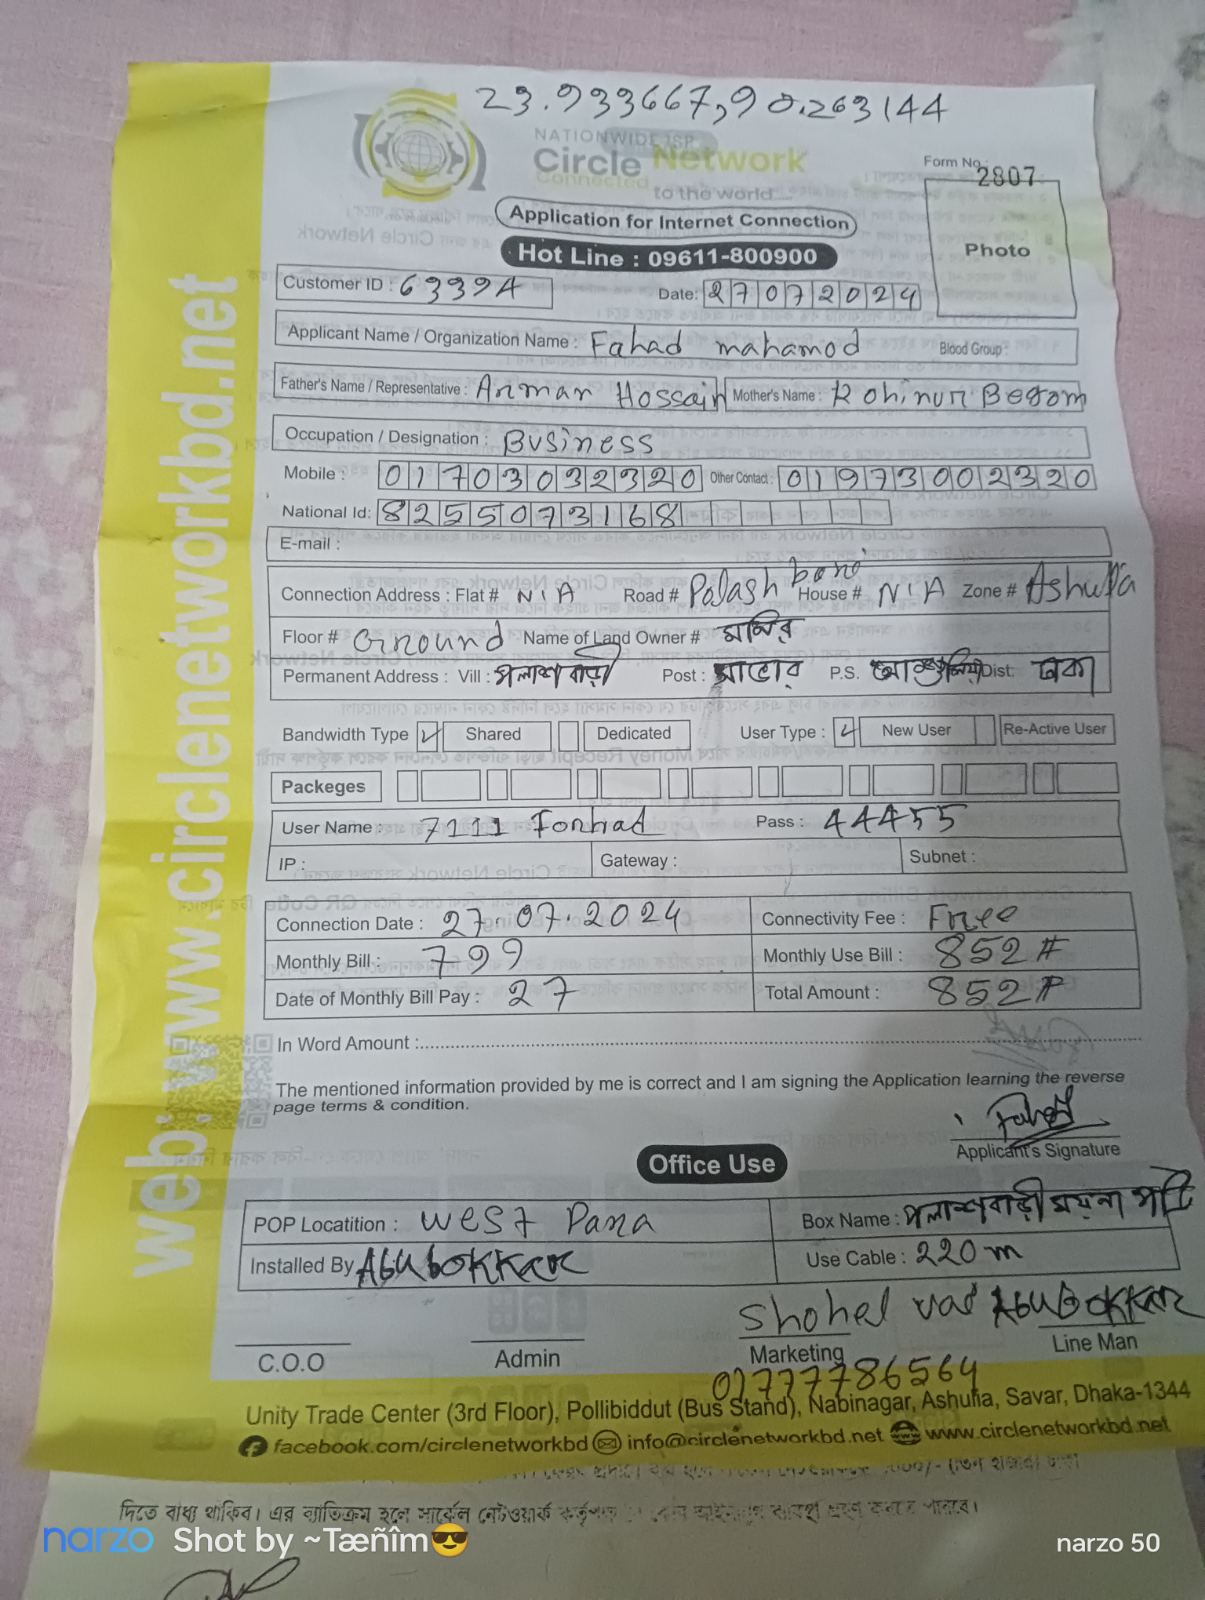 23.933667,90.263144
NATIONWIDE ISP
Circle Network
Connected to the world...
Form No.: 2807
Photo
Application for Internet Connection
Hot Line : 09611-800900
Customer ID : 63394 Date: 27072024
Applicant Name / Organization Name : Fahad mahamod Blood Group :
Father's Name / Representative : Arman Hossain Mother's Name : Rohinur Begom
Occupation / Designation : Business
Mobile : 01703032320 Other Contact : 01973002320
National Id: 8255073168
E-mail :
Connection Address : Flat # N/A Road # Palash bari House # N/A Zone # Ashulia
Floor # Ground Name of Land Owner # মনির
Permanent Address : Vill : পলাশবাড়ী Post : সাভার P.S. আশুলিয়া Dist. ঢাকা
Bandwidth Type Shared Dedicated User Type : New User Re-Active User
Packeges
User Name : 7111 Forhad Pass : 44455
IP : Gateway : Subnet :
Connection Date : 27.07.2024 Connectivity Fee : Free
Monthly Bill : 799 Monthly Use Bill : 852#
Date of Monthly Bill Pay : 27 Total Amount : 852#
In Word Amount :
The mentioned information provided by me is correct and I am signing the Application learning the reverse
page terms & condition.
Fahad
Applicant's Signature
Office Use
POP Locatition : West Para Box Name : পলাশবাড়ী ময়না পট্টি
Installed By Abubokkar Use Cable : 220 m
Shohel vai Abubokkar
C.O.O Admin Marketing Line Man
01777786564
Unity Trade Center (3rd Floor), Pollibiddut (Bus Stand), Nabinagar, Ashulia, Savar, Dhaka-1344
facebook.com/circlenetworkbd info@circlenetworkbd.net www.circlenetworkbd.net
web: www.circlenetworkbd.net
দিতে বাধ্য থাকিব। এর ব্যতিক্রম হলে সার্কেল নেটওয়ার্ক
narzo Shot by ~Tæñîm😎 narzo 50